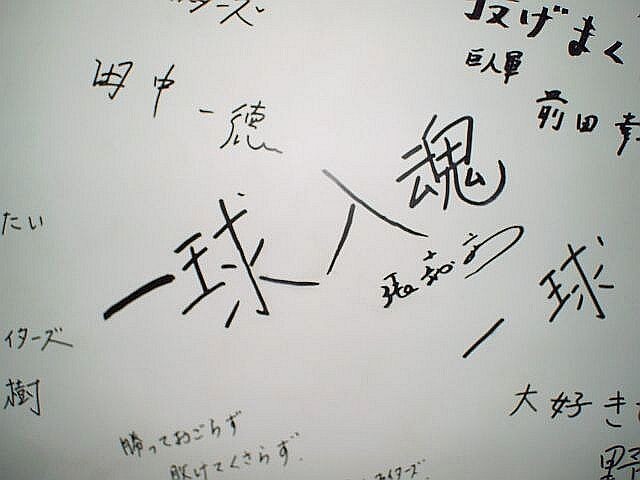 ターズ。
投げまく
巨人軍
前田 幸
田中
一徳
一球入魂
たい
一球
イターズ
樹
大好き
勝っておごらず
敗けてくさらず。
ァイターズ
野